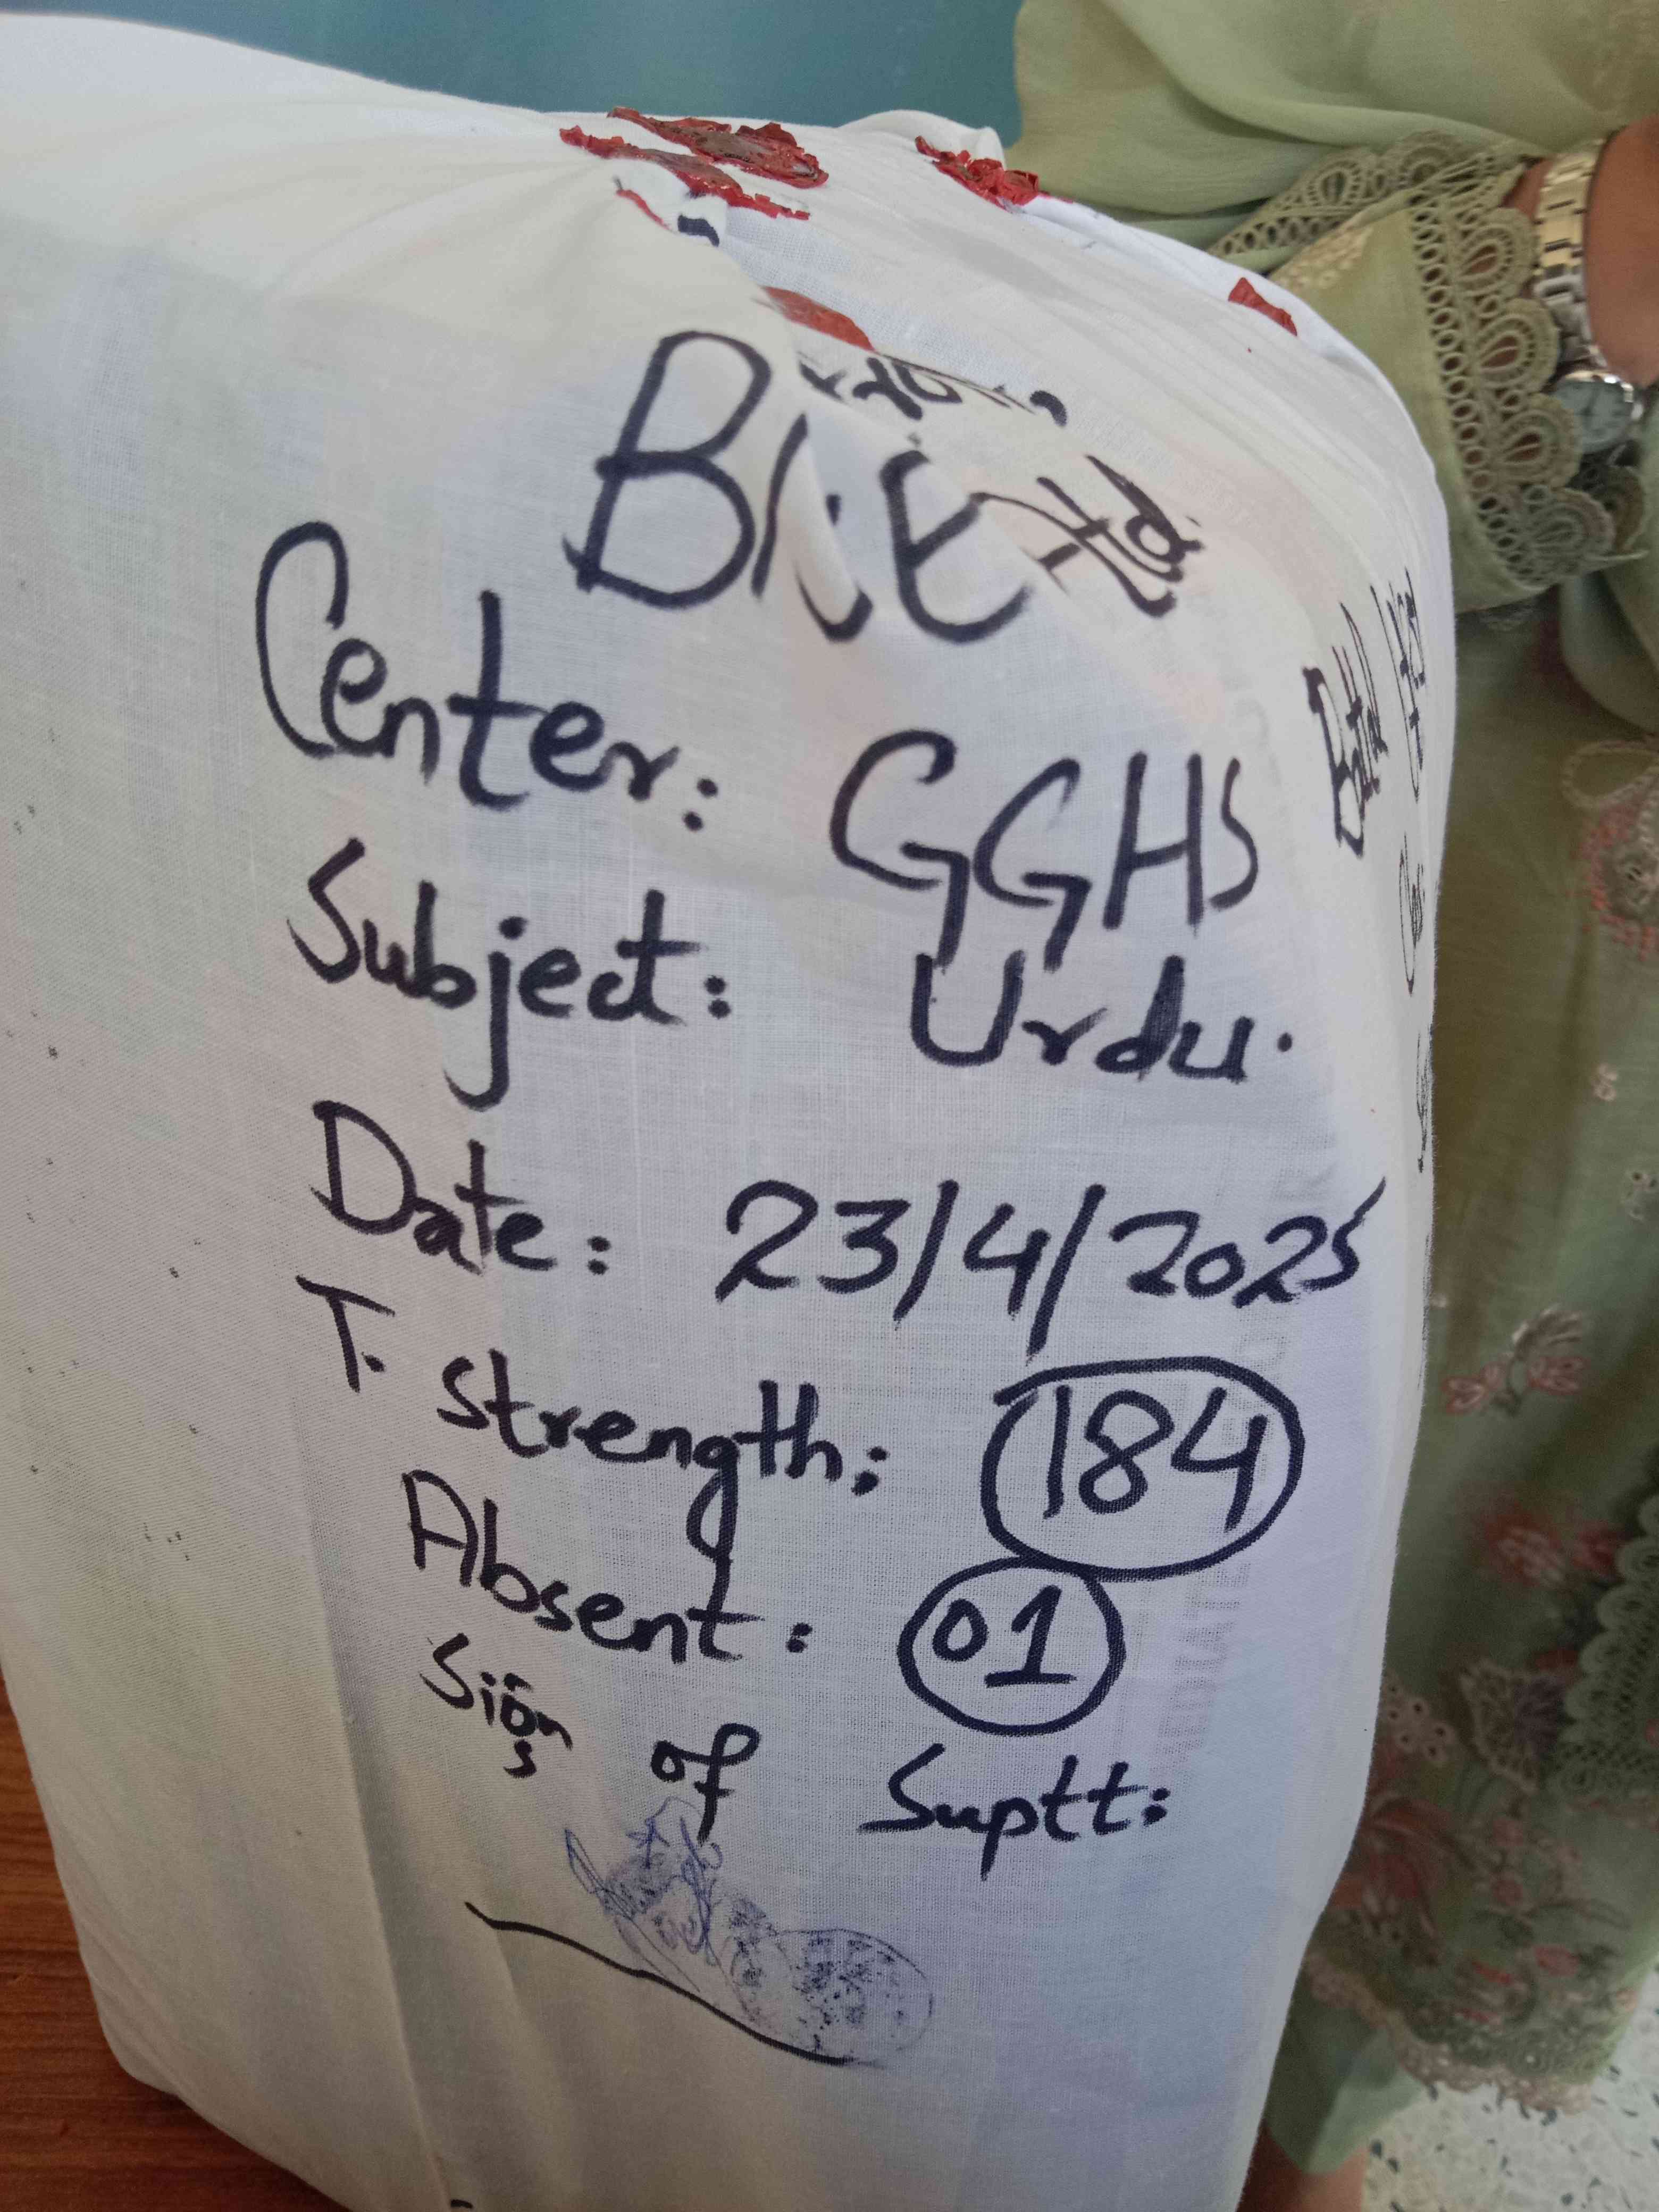 Center: GGHS
Subject: Urdu.
Date: 23/4/2025
T. Strength: 184
Absent: 01
Sign of Suptt: